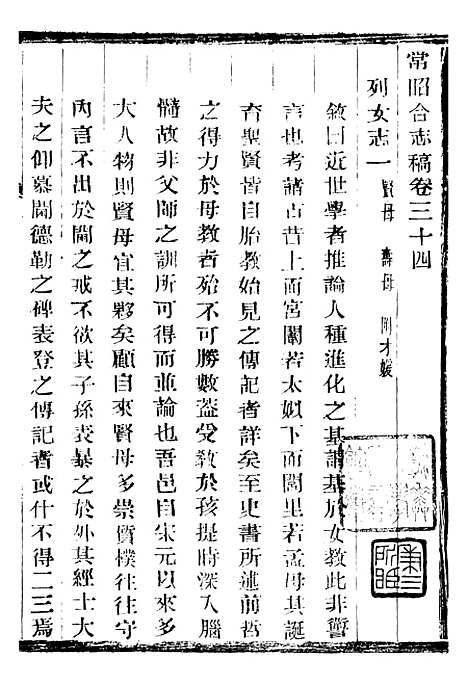 常昭合志稿卷三十四
列女志一 賢母 壽母 附才媛
敘曰近世學者推論人種進化之基謂基於女教此非讆
言也考諸古昔上而宮闈若太姒下而閭里若孟母其誕
育聖賢皆自胎教始見之傳記者詳矣至史書所述前哲
之得力於母教者殆不可勝數蓋受教於孩提時深入腦
髓故非父師之訓所可得而並論也吾邑自宋元以來多
大人物則賢母宜其夥矣顧自來賢母多崇質樸往往守
內言不出於閫之戒不欲其子孫表暴之於外其經士大
夫之仰慕閫德勒之碑表登之傳記者或什不得二三焉